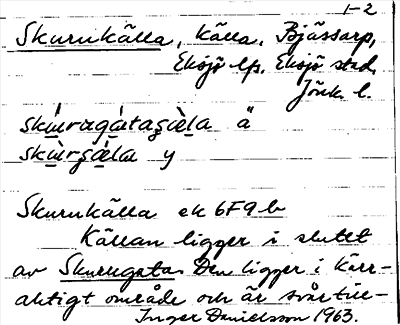 1-2
Skurukälla, källa, Bjässarp,
Eksjö lfs, Eksjö stad,
Jönk l.
skùrugàtaʂὲla ä
skùrʂὲla y
Skurukälla ek 6F9b
Källan ligger i slutet
av Skurugata. Den ligger i kärr-
aktigt område och är svårtill-
Inger Danielsson 1963.